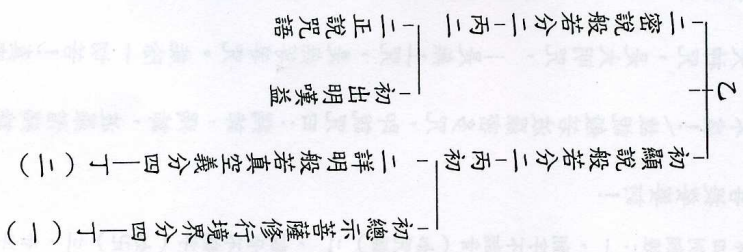 乙
初顯說般若分二—丙初
初總示菩薩修行境界分四—丁(一)
二詳明般若真空義分四—丁(二)
二密說般若分二—丙二
初出明嘆益
二正說咒語